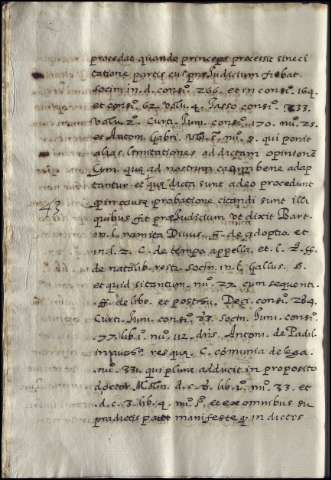 procedat quando princeps processit sine ci
tatione partis cui præiudicium fiebat
socin. in. d. consi. 266. et in consi. 164.
et consi. 62. volu. 4. Jasso consi. 233.
volu. 2. Curti. Juni. consi. 170. nu. 25.
et Anton. Gabri. nu. 8. qui ponit
alias limitationes ad dictam opinionē
Cum que ad nostrum casum bene adap
tantur et que dicta sunt adeo procedunt
43 probatione citandi sunt illi
quibus fit præiudicium ut dixit Bart.
in. l. nam ita Divus. ff. de adoptio. et
in. d. 2. C. de tempo. appella. et. l. 2. ff.
de natalib. resti. socin. in. l. Gallus. §.
et quid si tantum. nu. 22. cum sequenti.
ff. de libe. et posthu. Deci. consi. 284.
Curti. Juni. consi. 23. socin. Juni. consi.
77. lib. 1. nu. 112. dns. Anton. de Padil.
in res quæ. C. comunia de lega.
nu. 33. qui plura adducit in proposito
doctor Molin. d. c. 8. lib. 1. nu. 33. et
.d. c. 3. lib. 4. nu. et ex omnibus su
pradictis patet manifeste in dictis